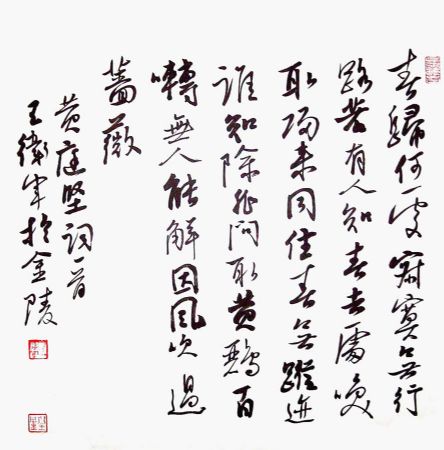 春歸何處寂寞无行
路若有人知春去處唤
取歸来同住春无蹤迹
谁知除非问取黄鹂百
囀無人能解因風吹過
薔薇
黄庭坚词一首
王衛军於金陵